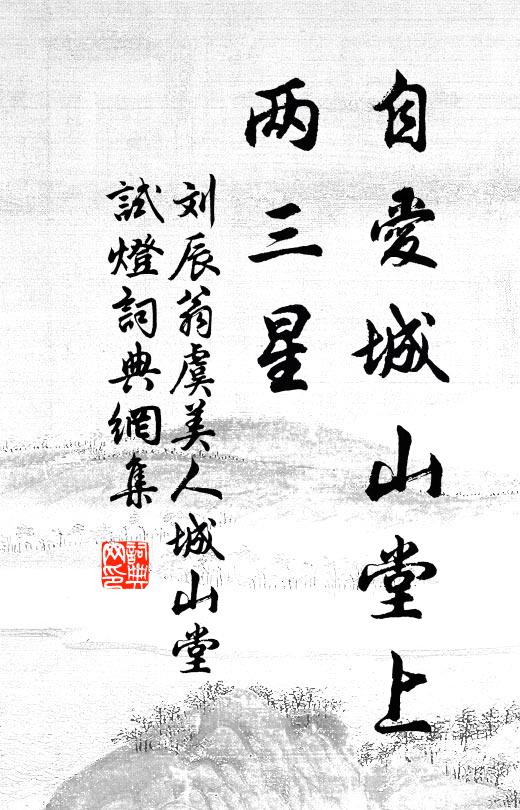 自愛城山堂上
两三星
刘辰翁虞美人城山堂
試燈詞典網集
詞典
网印